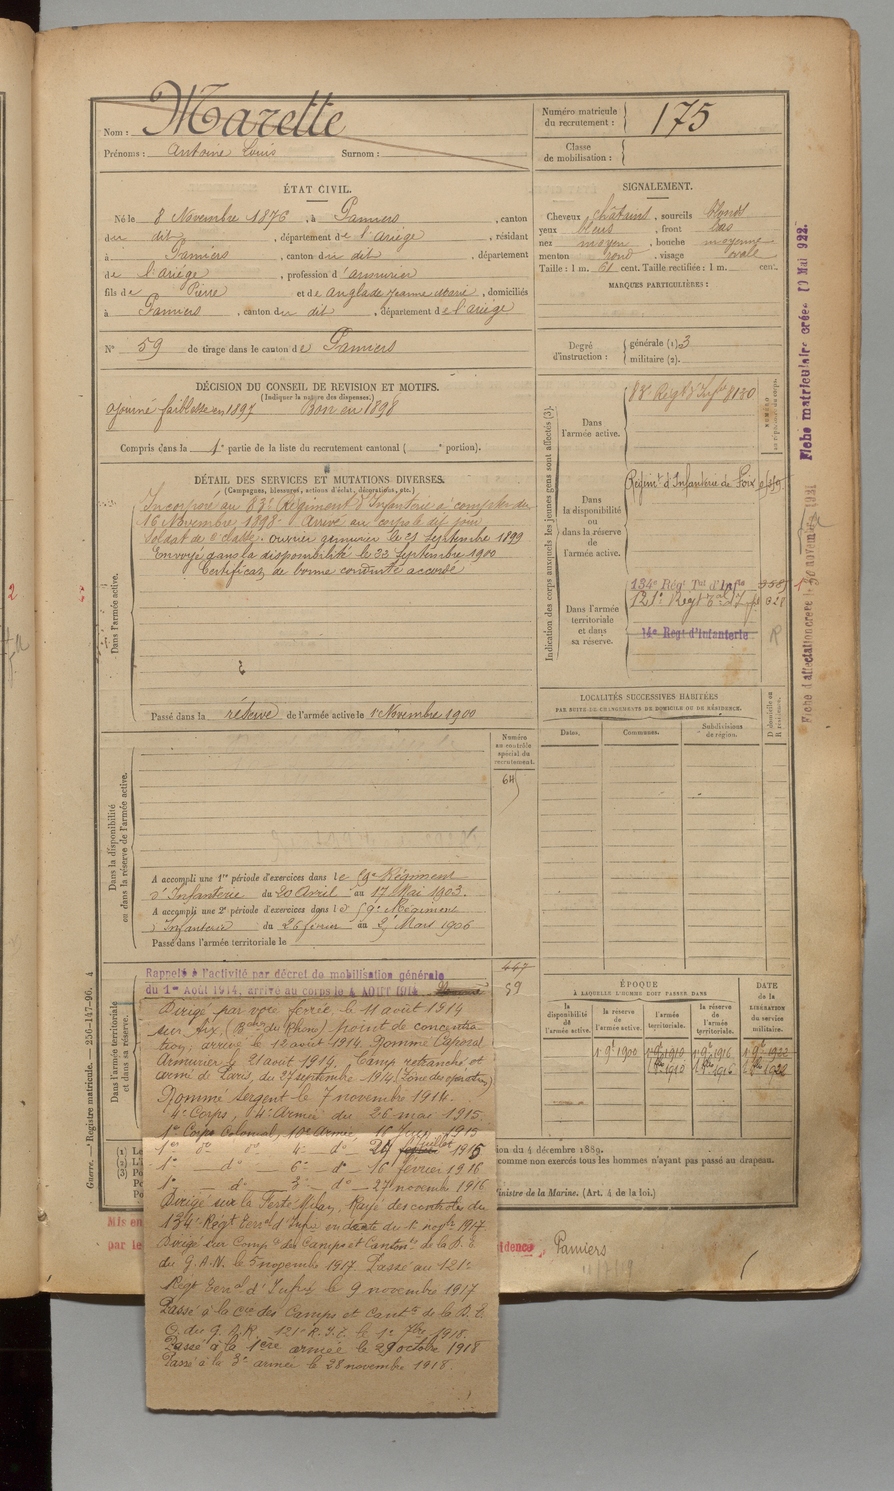 Nom : Marette
Prénoms : Antoine Louis Surnom :
Numéro matricule du recrutement : 175
Classe de mobilisation :
ÉTAT CIVIL.
Né le 8 Novembre 1876, à Pamiers, canton
du dit, département de l'Ariège, résidant
à Pamiers, canton du dit, département
de l'Ariège, profession d'armurier
fils de Pierre et de Anglade Jeanne Marie, domiciliés
à Pamiers, canton du dit, département de l'Ariège
N° 59 de tirage dans le canton de Pamiers
SIGNALEMENT.
Cheveux châtains, sourcils blonds
yeux bleus, front bas
nez moyen, bouche moyenne
menton rond, visage ovale
Taille : 1 m. 61 cent. Taille rectifiée : 1 m. cent.
MARQUES PARTICULIÈRES :
Degré d'instruction : générale (1) 3
militaire (2).
DÉCISION DU CONSEIL DE REVISION ET MOTIFS.
(Indiquer la nature des dispenses.)
Ajourné faiblesse en 1897 Bon en 1898
Compris dans la 1e partie de la liste du recrutement cantonal ( e portion).
DÉTAIL DES SERVICES ET MUTATIONS DIVERSES.
(Campagnes, blessures, actions d'éclat, décorations, etc.)
Dans l'armée active.
Incorporé au 83e Régiment d'Infanterie à compter du
16 Novembre 1898. Arrivé au corps le dit jour
Soldat de 2e classe. Ouvrier armurier le 21 Septembre 1899
Envoyé dans la disponibilité le 22 Septembre 1900
Certificat de bonne conduite accordé
Passé dans la réserve de l'armée active le 1er Novembre 1900
Indication des corps auxquels les jeunes gens sont affectés (3).
Dans l'armée active.
83e Régt d'Infie 8130
Dans la disponibilité ou dans la réserve de l'armée active.
Régimt d'Infanterie de Foix
Dans l'armée territoriale et dans sa réserve.
134e Régt Tal d'Infie
121e Régt Tal d'Inf 328
14e Régt d'Infanterie
Fiche matriculaire créée 10 Mai 1922.
Fiche d'affectation créée le 30 novembre 1921
LOCALITÉS SUCCESSIVES HABITÉES
PAR SUITE DE CHANGEMENTS DE DOMICILE OU DE RÉSIDENCE.
Dates. Communes. Subdivisions de région.
D. domicile ou R. résidence.
Numéro au contrôle spécial du recrutement.
Dans la disponibilité ou dans la réserve de l'armée active.
A accompli une 1re période d'exercices dans le 59e Régiment
d'Infanterie du 20 Avril au 17 Mai 1903.
A accompli une 2e période d'exercices dans le 59e Régiment
d'Infanterie du 26 février au Mars 1906
Passé dans l'armée territoriale le
Dans l'armée territoriale et dans sa réserve.
447
59
Rappelé à l'activité par décret de mobilisation générale
du 1er Août 1914, arrivé au corps le 4 AOUT 1914
Dirigé par voie ferrée, le 11 août 1914
sur Aix, (Bches du Rhône) point de concentra-
tion, arrivé le 12 août 1914. Nommé Caporal
Armurier le 21 août 1914. Camp retranché et
armé de Paris, du 27 septembre 1914 (Zone des opérations)
Nommé Sergent le 7 novembre 1914.
4e Corps, 4e Armée du 26 mai 1915.
1er Corps Colonial, 10e Armée, 16 Juin 1915
1er do do 4e do 24 juillet 1915
1e do 6e do 16 février 1916
1e do 3e do 27 novembre 1916
Dirigé sur la Ferté Milon, Rayé des contrôles du
134e Régt Terral d'Infie en date du 1er novbre 1917.
Dirigé sur Compie des Camps et Cantonts de la D. E.
du G.A.N. le 5 novembre 1917. Passé au 121e
Régt Terral d'Infie le 9 novembre 1917
Passé à la Cie des Camps et Cantts de la D. E.
121e R.I.T. le 1er 7bre 1918.
Passé à la 1ère armée le 29 octobre 1918
Passé à la 3e armée le 28 novembre 1918.
ÉPOQUE
À LAQUELLE L'HOMME DOIT PASSER DANS
la disponibilité de l'armée active.
la réserve de l'armée active.
l'armée territoriale.
la réserve de l'armée territoriale.
DATE de la LIBÉRATION du service militaire.
1er 9bre 1900 1er 9bre 1910 1er 9bre 1916 1er 9bre 1922
1er 8bre 1910 1er 8bre 1916 1er 8bre 1922
Guerre. — Registre matricule. — 256-147-96. 4
ion du 4 décembre 1889.
comme non exercés tous les hommes n'ayant pas passé au drapeau.
inistre de la Marine. (Art. 4 de la loi.)
Mis en
par le
idence, Pamiers